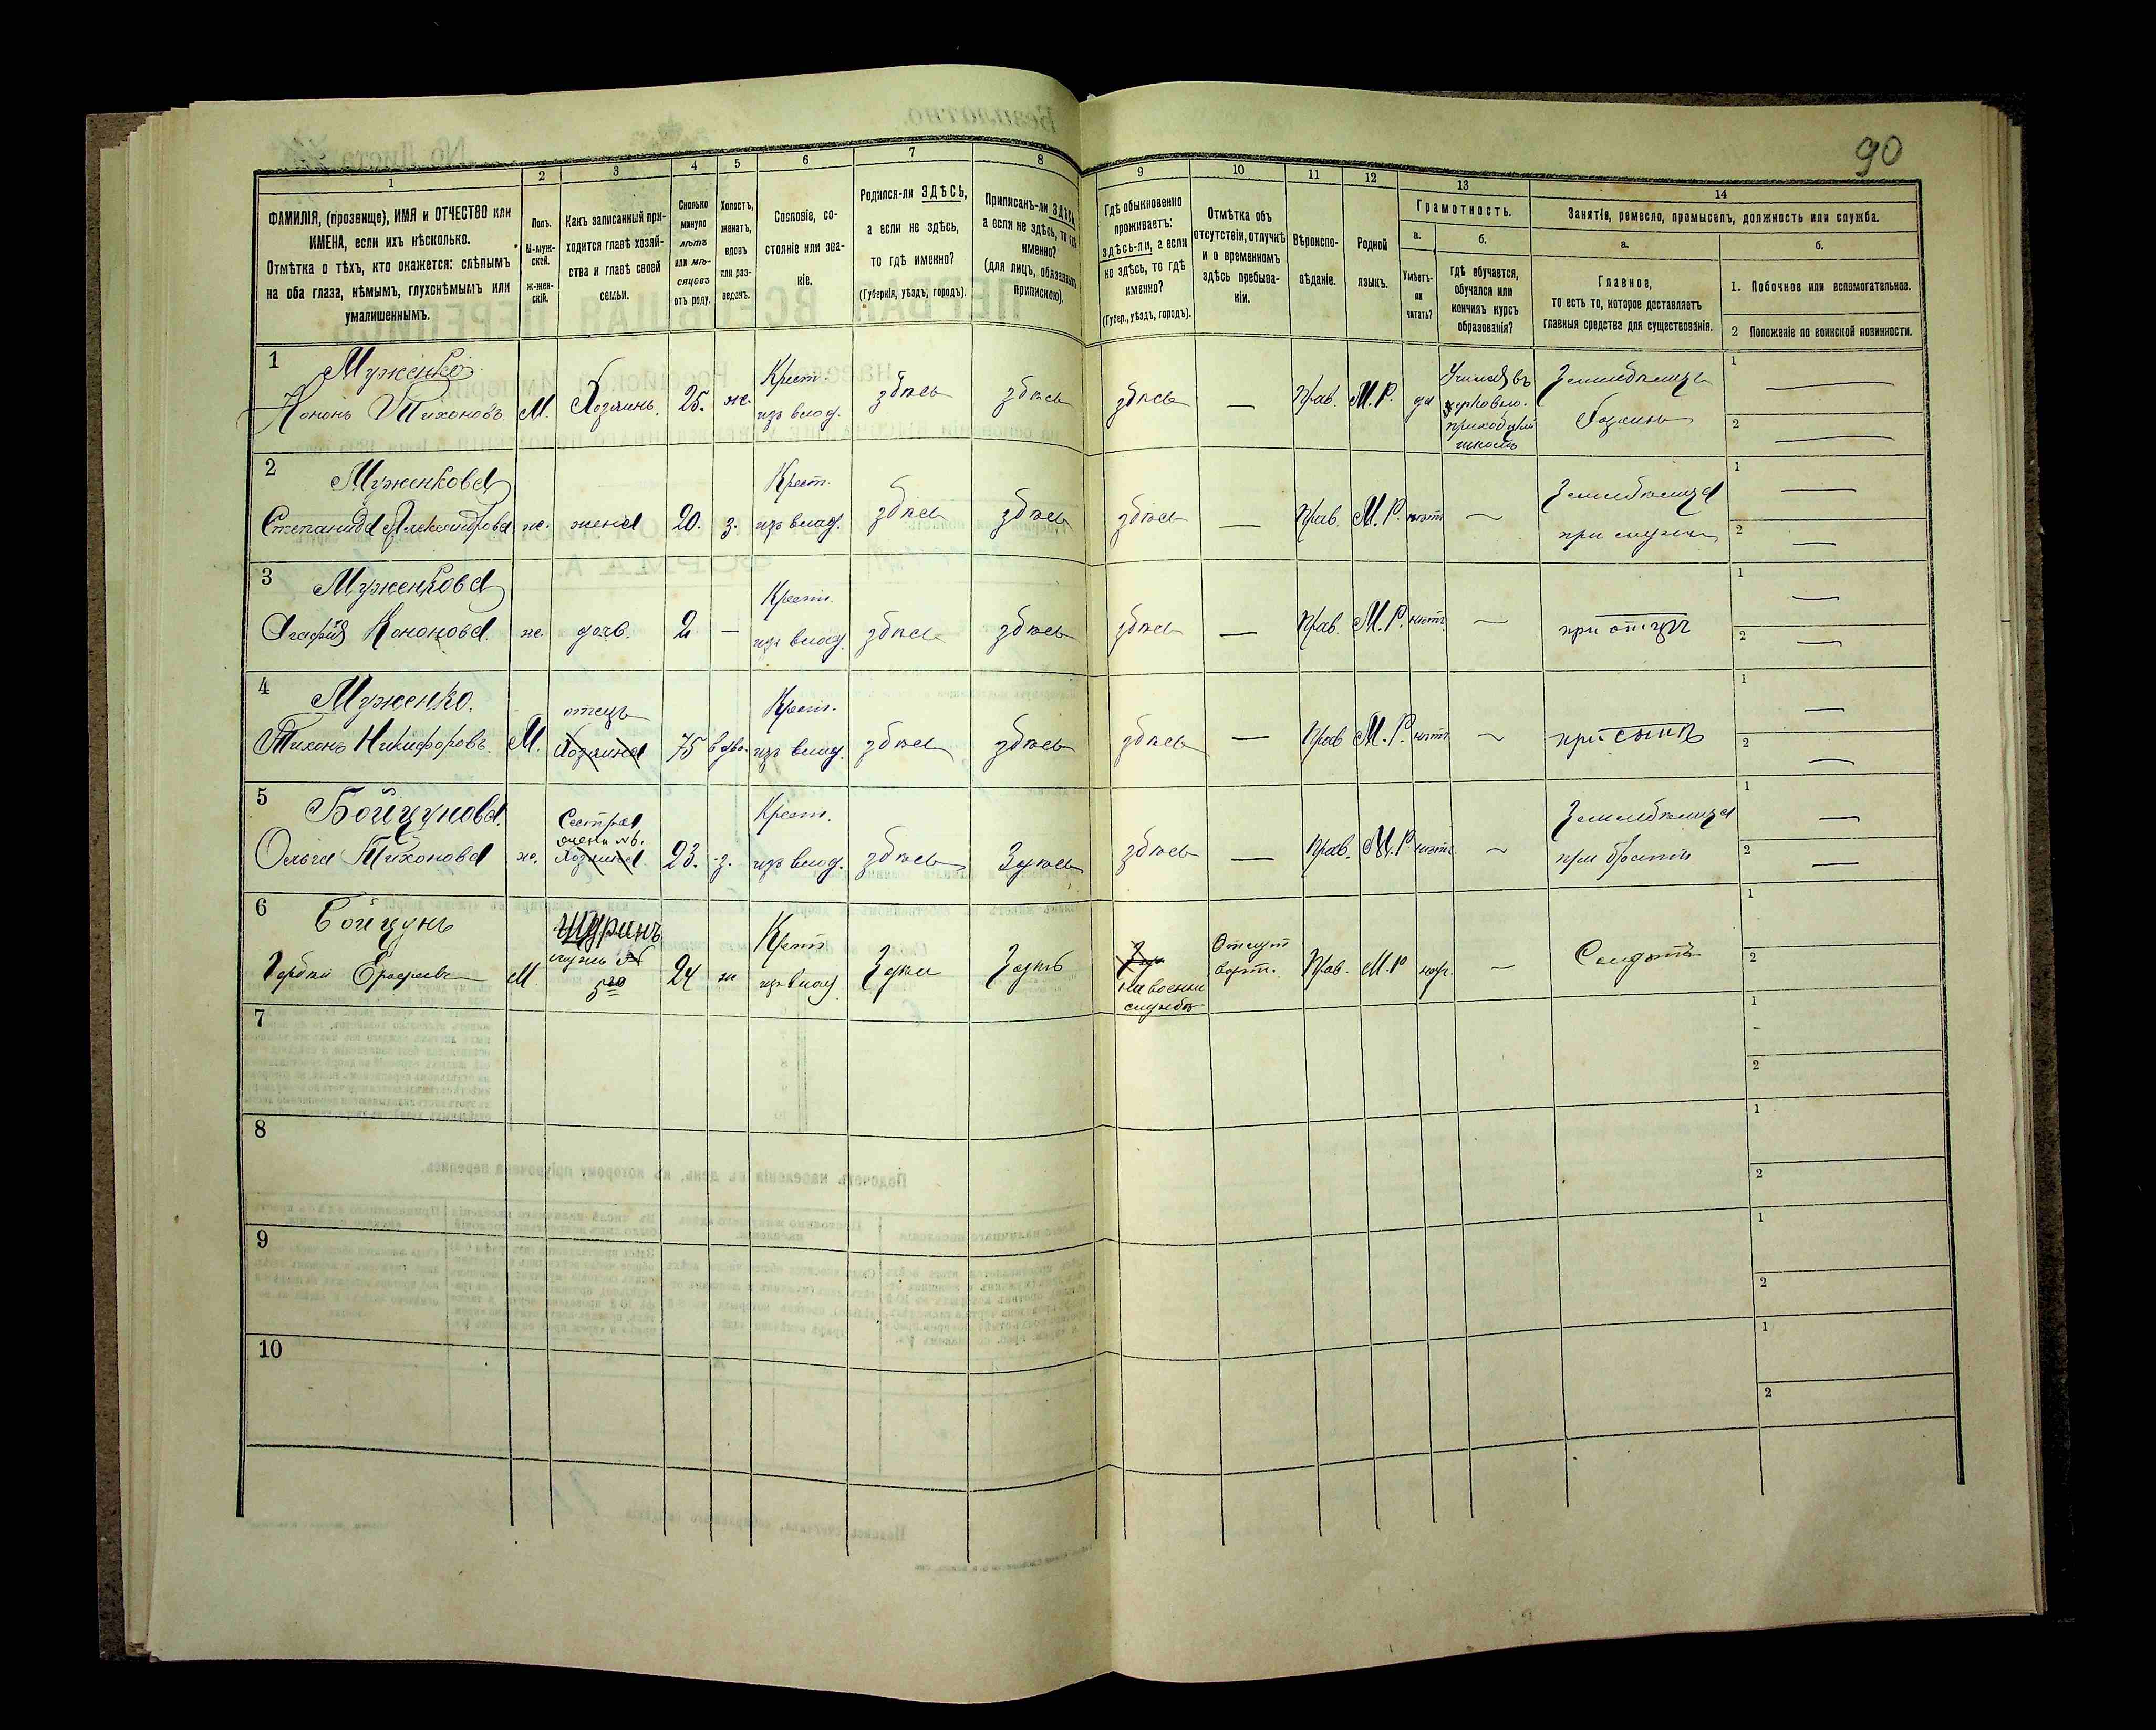 90
1 2 3 4 5 6 7 8 9 10 11 12 13 14
ФАМИЛІЯ, (прозвище), ИМЯ и ОТЧЕСТВО или
ИМЕНА, если ихъ нѣсколько.
Отмѣтка о тѣхъ, кто окажется: слѣпымъ
на оба глаза, нѣмымъ, глухонѣмымъ или
умалишеннымъ.
Полъ.
М-муж-
ской.
Ж-жен-
скій.
Какъ записанный при-
ходится главѣ хозяй-
ства и главѣ своей
семьи.
Сколько
минуло
лѣтъ
или мѣ-
сяцевъ
отъ роду.
Холостъ,
женатъ,
вдовъ
или раз-
веденъ.
Сословіе, со-
стояніе или зва-
ніе.
Родился-ли ЗДѢСЬ,
а если не здѣсь,
то гдѣ именно?
(Губернія, уѣздъ, городъ).
Приписанъ-ли ЗДѢСЬ,
а если не здѣсь, то гдѣ
именно?
(для лицъ, обязанныхъ
припискою).
Гдѣ обыкновенно
проживаетъ:
здѣсь-ли, а если
не здѣсь, то гдѣ
именно?
(Губер., уѣздъ, городъ).
Отмѣтка объ
отсутствіи, отлучкѣ
и о временномъ
здѣсь пребыва-
ніи.
Вѣроиспо-
вѣданіе.
Родной
языкъ.
Грамотность.
а.
Умѣетъ-
ли
читать?
б.
гдѣ обучается,
обучался или
кончилъ курсъ
образованія?
Занятіе, ремесло, промыселъ, должность или служба.
а.
Главное,
то есть то, которое доставляетъ
главныя средства для существованія.
б.
1. Побочное или вспомогательное.
2 Положеніе по воинской повинности.
1 Муженко
Кононъ Тихоновъ. М. Хозяинъ. 25. ж. Крест.
изъ влад. здѣсь здѣсь здѣсь — Прав. М. Р. да
Училс. въ
церковно-
приход.
школѣ
Хозяинъ
1
2
2 Муженкова
Степанида Александрова ж. жена 20. з. Крест.
изъ влад. здѣсь здѣсь здѣсь — Прав. М. Р. нѣтъ —
при мужѣ
1
2
3 Муженкова
Агафія Кононова. ж. дочь. 2 — Крест.
изъ влад. здѣсь здѣсь здѣсь — Прав. М. Р. нѣтъ —
при отцѣ
1
2
4 Муженко.
Тихонъ Никифоровъ. М. отецъ
Хозяина 75 вдов. Крест.
изъ влад. здѣсь здѣсь здѣсь — Прав. М. Р. нѣтъ —
при сынѣ
1
2
5 Бойцунова.
Ольга Тихонова ж. Сестра
Хозяина 23. з. Крест.
изъ влад. здѣсь здѣсь здѣсь — Прав. М. Р. нѣтъ. —
при братѣ
1
2
6 Бойцунъ
М. Шуринъ
мужъ №
5го 24 ж Крест
изъ влад Здѣсь Здѣсь
На военн
службѣ
Прав. М. Р —
Солдатъ
1
2
7
1
2
8
1
2
9
1
2
10
1
2